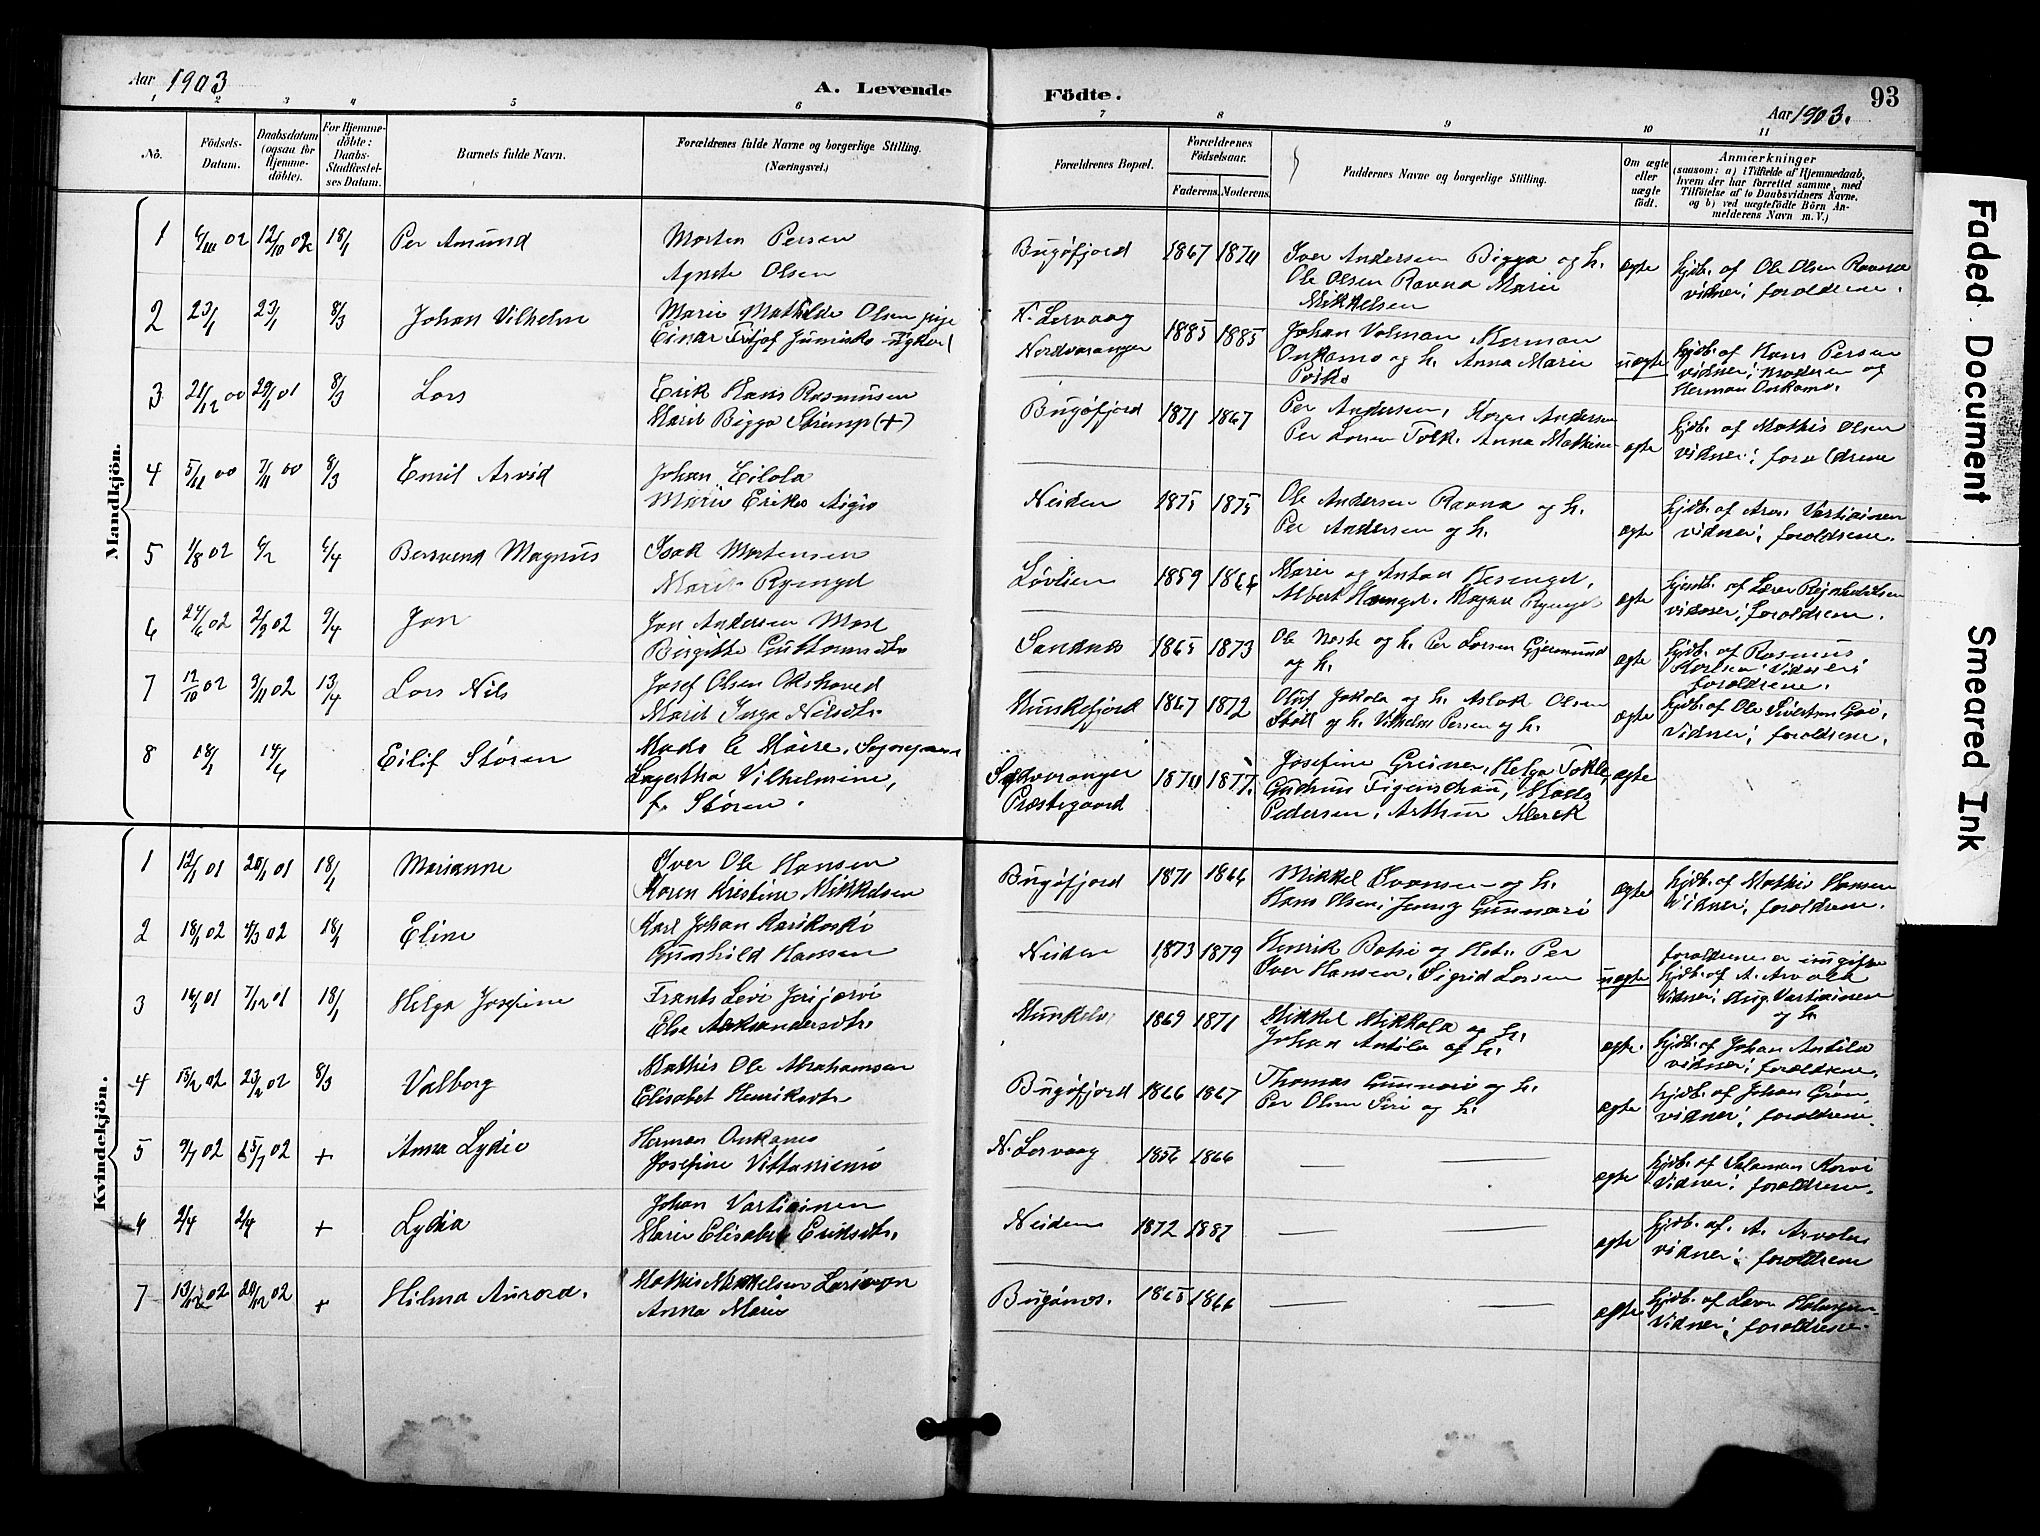 Aar 1903
A. Levende Födte.
Aar 1903.
93
1 2 3 4 5 6 7 8 9 10 11
No.
Födsels-Datum.
Daabsdatum (ogsaa för Hjemme-döbte).
For Hjemme-döbte: Daabs-Stadfæstel-ses Datum.
Barnets fulde Navn.
Forældrenes fulde Navne og borgerlige Stilling. (Næringsvei.)
Forældrenes Bopæl.
Forældrenes Födselsaar.
Faderens. Moderens.
Faddernes Navne og borgerlige Stilling.
Om ægte eller uægte födt.
Anmærkninger
(saasom: a) i Tilfælde af Hjemmedaab,
hvem der har forrettet samme, med
Tilföielse af to Daabsvidners Navne.
og b) ved uægtefödte Börn An-
melderens Navn m. V.)
Mandkjön.
1 6/11 02 12/10 02 18/1 Per Amund
Morten Persen
Agnete Olsen
Bugøfjord 1867 1874
Iver Andersen Bigga og h.
Ole Olsen Ravna Marie
Mikkelsen
ægte
hjdb. af Ole Olsen Ravna
vidner: foroldrene.
2 23/1 23/1 8/3 Johan Vilhelm
Marie Mathilde Olsen pige
Einar Fritjof Junisko
N. Lervaag
Nordvaranger 1885 1885
Johan Volman, Herman
Onkamo og h. Anna Marie
Poiko
uægte
hjdb. af Hans Persen
vidner: moderen og
Herman Onkamo.
3 21/12 00 29/1 01 8/3 Lars
Erik Hans Rasmussen
Marit Bigga Strimp (+)
Bugøfjord 1871 1867
Per Andersen, Karen Andersen
Per Larsen Tolk. Anna Mathisen
ægte
hjdb. af Mathis Olsen
vidner: foroldrene
4 5/11 00 7/11 00 8/3 Emil Arvid
Johan Eilola
Marie Eriks Aigio
Neiden 1875 1875
Ole Andersen Ravna og h.
Per Andersen og h.
ægte
hjdb. af Vartiainen
vidner: foroldrene.
5 1/8 02 6/2 6/4 Bersvend Magnus
Isak Mortensen
Marit Ryengel
1859 1864
Marie og Anton
Albert
ægte
hjemdb. af Lærer
vidner: foroldrene.
6 24/6 02 2/9 02 9/4 Jon
Jon Andersen
Birgitte
Sandnes 1865 1873
Ole Neste og h. Per Larsen Gjermund
og h.
ægte
hjdb. af Rasmus
Karlsen: Vidner:
foroldrene.
7 12/10 02 9/11 02 13/4 Lars Nils
Josef Olsen
Marit Inga Nilsdtr.
Munkefjord 1867 1872
Oluf Jokola og h. Aslak Olsen
og h. Vilhelm Persen og h.
ægte
hjdb. af Ole Sivertsen
vidner: foroldrene.
8 18/1 14/4 Eilif Støren
Mads C Moire. Sognepræst
Lagertha Vilhelmine,
f. Støren.
Sydvaranger
Præstegaard 1874 1877.
Josefine Greiner, Helga Tokle,
Gudrun Figenschau, Mads
Pedersen, Arthur Klerck
ægte
Kvindekjön.
1 12/1 01 20/1 01 18/1 Marianne
Iver Ole Hansen
Karen Kristine Mikkelsen
Bugøfjord 1871 1864
Mikkel Svensen og h.
Hans Olsen, Gunnari
ægte
hjdb. af Mathis Hansen
Vidner: foroldrene.
2 18/1 02 4/3 02 18/1 Eline
Karl Johan Karikoski
Gunhild Hansen
Neiden 1873 1879
Henrik og Hst. Per
Iver Hansen, Sigrid Larsen
uægte
foroldrene er inngifte
hjdb. af A. Arvola
Vidner: Aug. Vartiainen
og h.
3 16/1 01 7/12 01 18/1 Helga Josefine
Frants Levi Jerijærvi
Else Aleksandersdtr.
Munkelv 1869 1871
Mikkel Mikkola og h.
Johan Antila og h.
ægte.
hjdb. af Johan Antila
vidner: foroldrene.
4 13/2 02 23/2 02 8/3 Valborg
Mathis Ole Abrahamsen
Elisabet Henriksdtr.
Bugøfjord 1866 1867
Thomas Gunnari og h.
Per Olsen Siri og h.
ægte
hjdb. af Johan Grön
vidner: foroldrene.
5 9/7 02 15/7 02 + Anna Lydie
Herman Onkamo
Josefine Vittaniemi
N. Lervaag 1856 1866
— —
ægte
hjdb. af Salaman Korvi
Vidner: foroldrene.
6 2/4 2/4 + Lydia
Johan Vartiainen
Marie Elisabet Eriksdtr.
Neiden 1872 1887
— —
ægte
hjdb. af. A. Arvola
vidner: foroldrene
7 13/12 02 20/12 02 + Hilma Aurora.
Mathis Mikkelsen
Anna Marie
Bugönes. 1865 1866
— —
ægte
hjdb. af Lars
vidner: foroldrene.
Faded Document
Smeared Ink